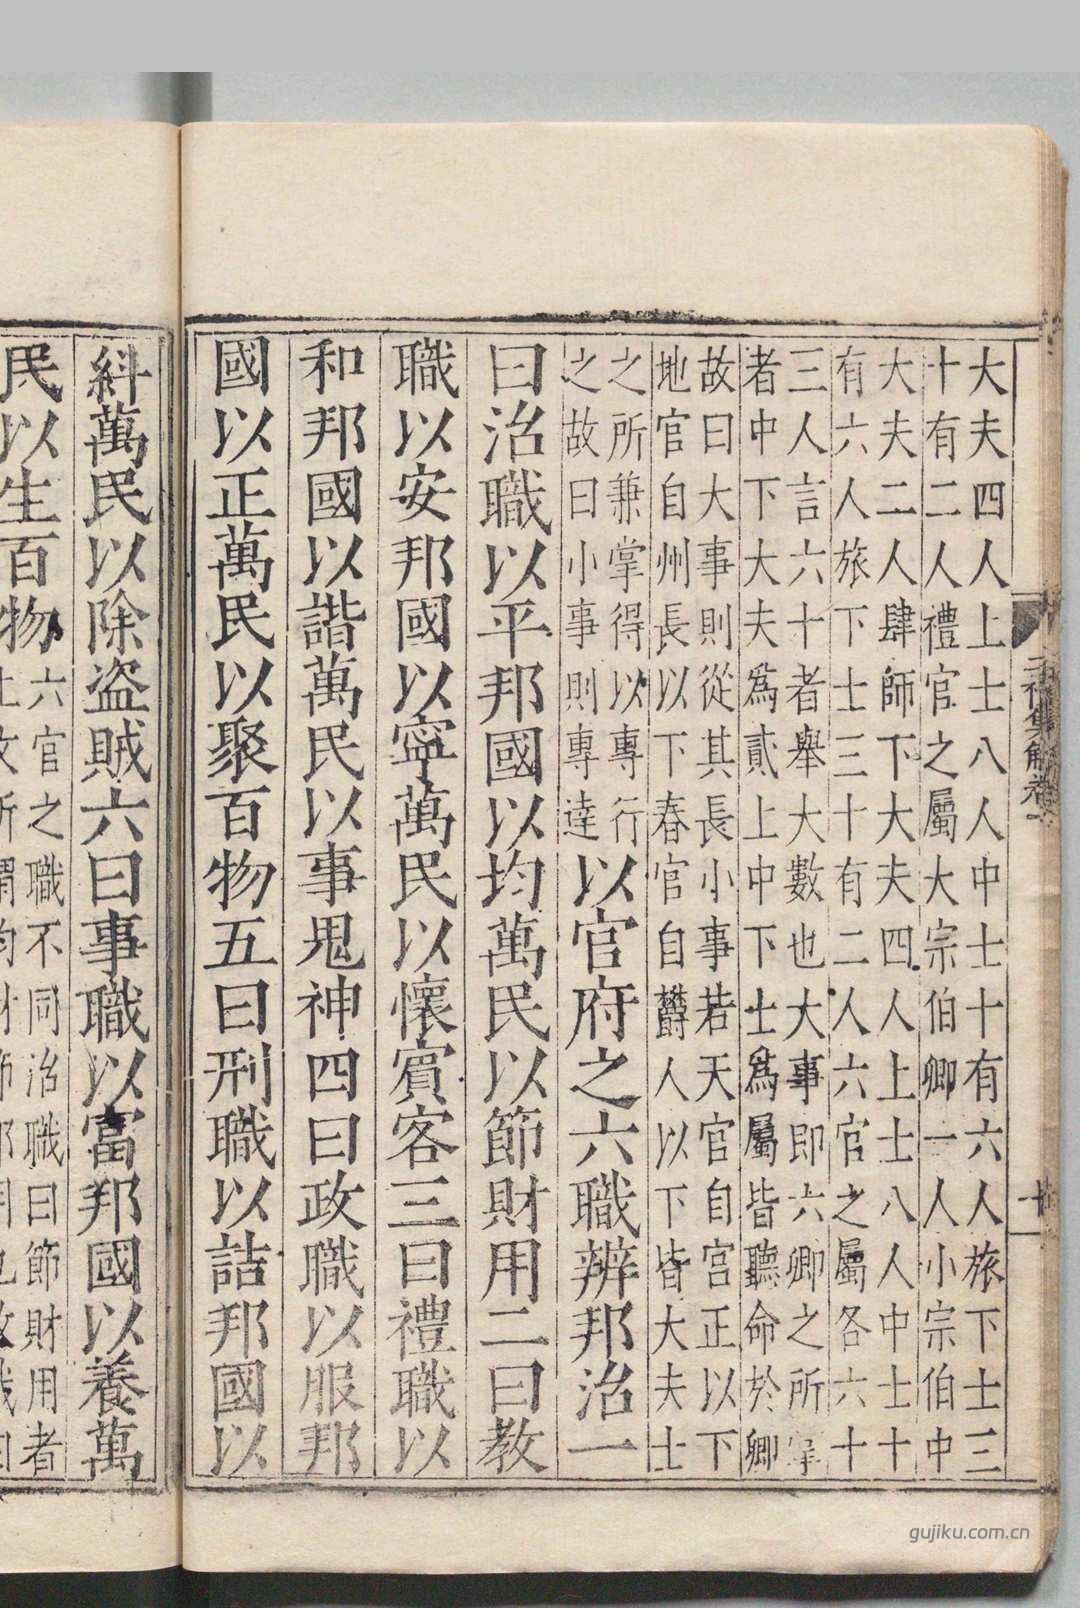 大夫四人上士八人中士十有六人旅下士三
十有二人禮官之屬大宗伯卿一人小宗伯中
大夫二人肆師下大夫四人上士八人中士十
有六人旅下士三十有二人六官之屬各六十
三人言六十者舉大數也大事即六卿之所
者中下大夫為貳上中下士為屬皆聽命於卿
故曰大事則從其長小事若天官自宮正以下
地官自州長以下春官自欝人以下皆大夫士
之所兼掌得以專行
之故曰小事則專達
以官府之六職辨邦治一
曰治職以平邦國以均萬民以節財用二曰教
職以安邦國以寧萬民以懷賓客三曰禮職以
和邦國以諧萬民以事鬼神四曰政職以服邦
國以正萬民以聚百物五曰刑職以詰邦國以
糾萬民以除盗賊六曰事職以富邦國以養萬
民以生百物
六官之職不同治職曰節財用者
三禮集解卷一
gujiku.com.cn